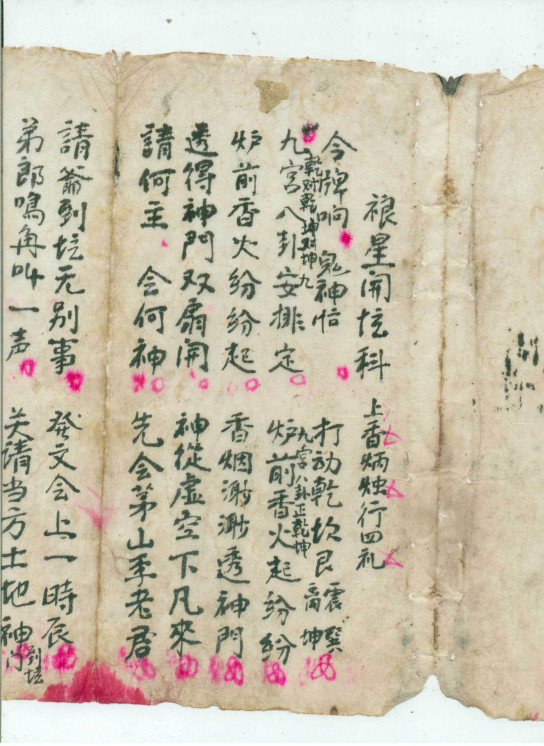 禳星開坛科 上香炳烛行四礼
令牌响 鬼神怕 打动乾坎艮震巽离坤
乾对乾坤对坤九 九宫八卦正乾坤
九宮八卦安排定 炉前香火起纷纷
炉前香火纷纷起 香烟渺渺透神門
透得神門双扇開 神從虚空下凡來
請何主 会何神 先会茅山李老君
請爺到坛无别事 發文会上一時辰
弟郎鳴角叫一声 关請当方土地神 到坛门